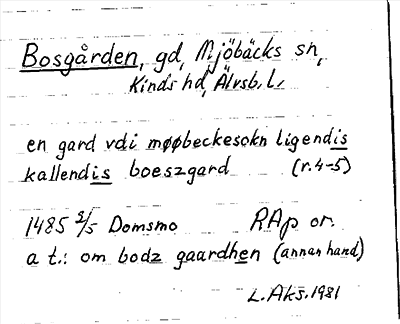 Bosgården, gd, Mjöbäcks sn,
Kinds hd, Älvsb. l.
en gard vdi møøbeckesokn ligendis
kallendis boeszgard (r. 4-5)
1485 3/5 Domsmo RAp or.
a t.: om bodz gaardhen (annan hand)
L. Aks. 1981